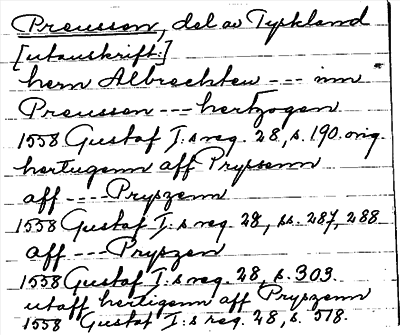 Preussen, del av Tyskland
[utanskrift:]
hern Albrechten --- inn
Preussen --- hertzogen
1558 Gustaf I:s reg. 28, s. 190. orig.
hertugenn aff Prysenn
aff ---- Pryszenn
1558 Gustaf I:s reg. 28, ss. 287, 288
aff --- Pryszen
1558 Gustaf I:s reg. 28, s. 303.
utaff hertigenn aff Pryszenn
1558 Gustaf I:s reg. 28, s. 518.